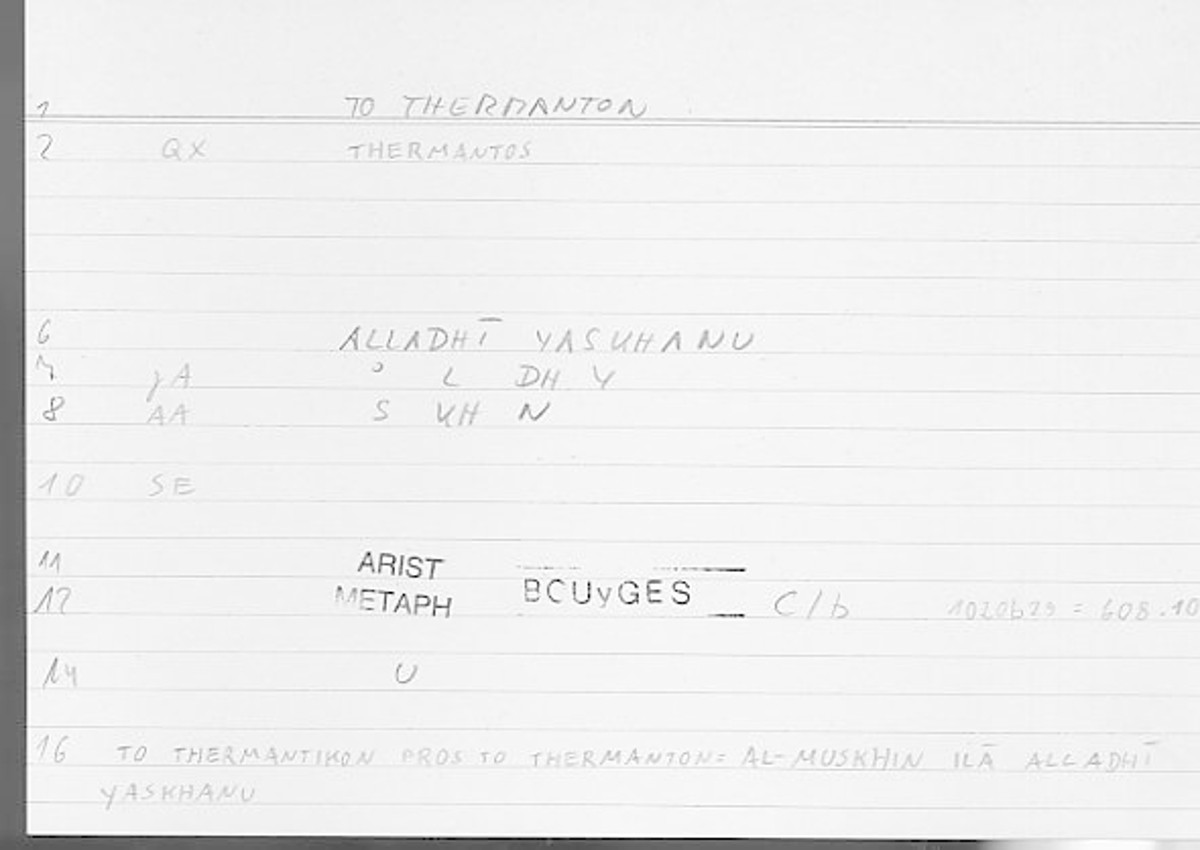 1 TO THERMANTON
2 QX THERMANTOS
6 ALLADHĪ YASKHANU
7 γA ʾ L DH Y
8 AA S KH N
10 SE
11 ARIST
12 METAPH BCUyGES C/b 1020b29 = 608.10
14 U
16 TO THERMANTIKON PROS TO THERMANTON = AL-MUSKHIN ILĀ ALLADHĪ
YASKHANU